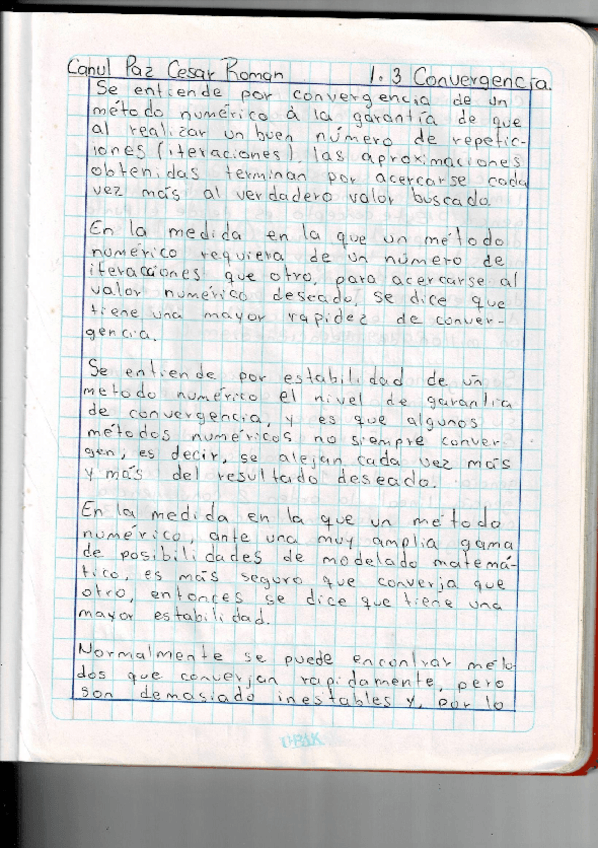 Canul Paz Cesar Roman 1.3 Convergencia.
Se entiende por convergencia de un
método numérico a la garantía de que
al realizar un buen número de repetic-
iones (iteraciones), las aproximaciones
obtenidas terminan por acercarse cada
vez más al verdadero valor buscado.
En la medida en la que un método
numérico requiera de un número de
iteracciones que otro, para acercarse al
valor numérico deseado, se dice que
tiene una mayor rapidez de conver-
gencia.
Se entiende por estabilidad de un
metodo numérico el nivel de garantia
de convergencia, y es que algunos
métodos numéricos no siempre conver-
gen, es decir, se alejan cada vez más
y más del resultado deseado.
En la medida en la que un método
numérico, ante una muy amplia gama
de posibilidades de modelado matemá-
tico, es más seguro que converja que
otro, entonces se dice que tiene una
mayor estabilidad.
Normalmente se puede encontrar méto
dos que converjan rapidamente, pero
son demasiado inestables y, por lo